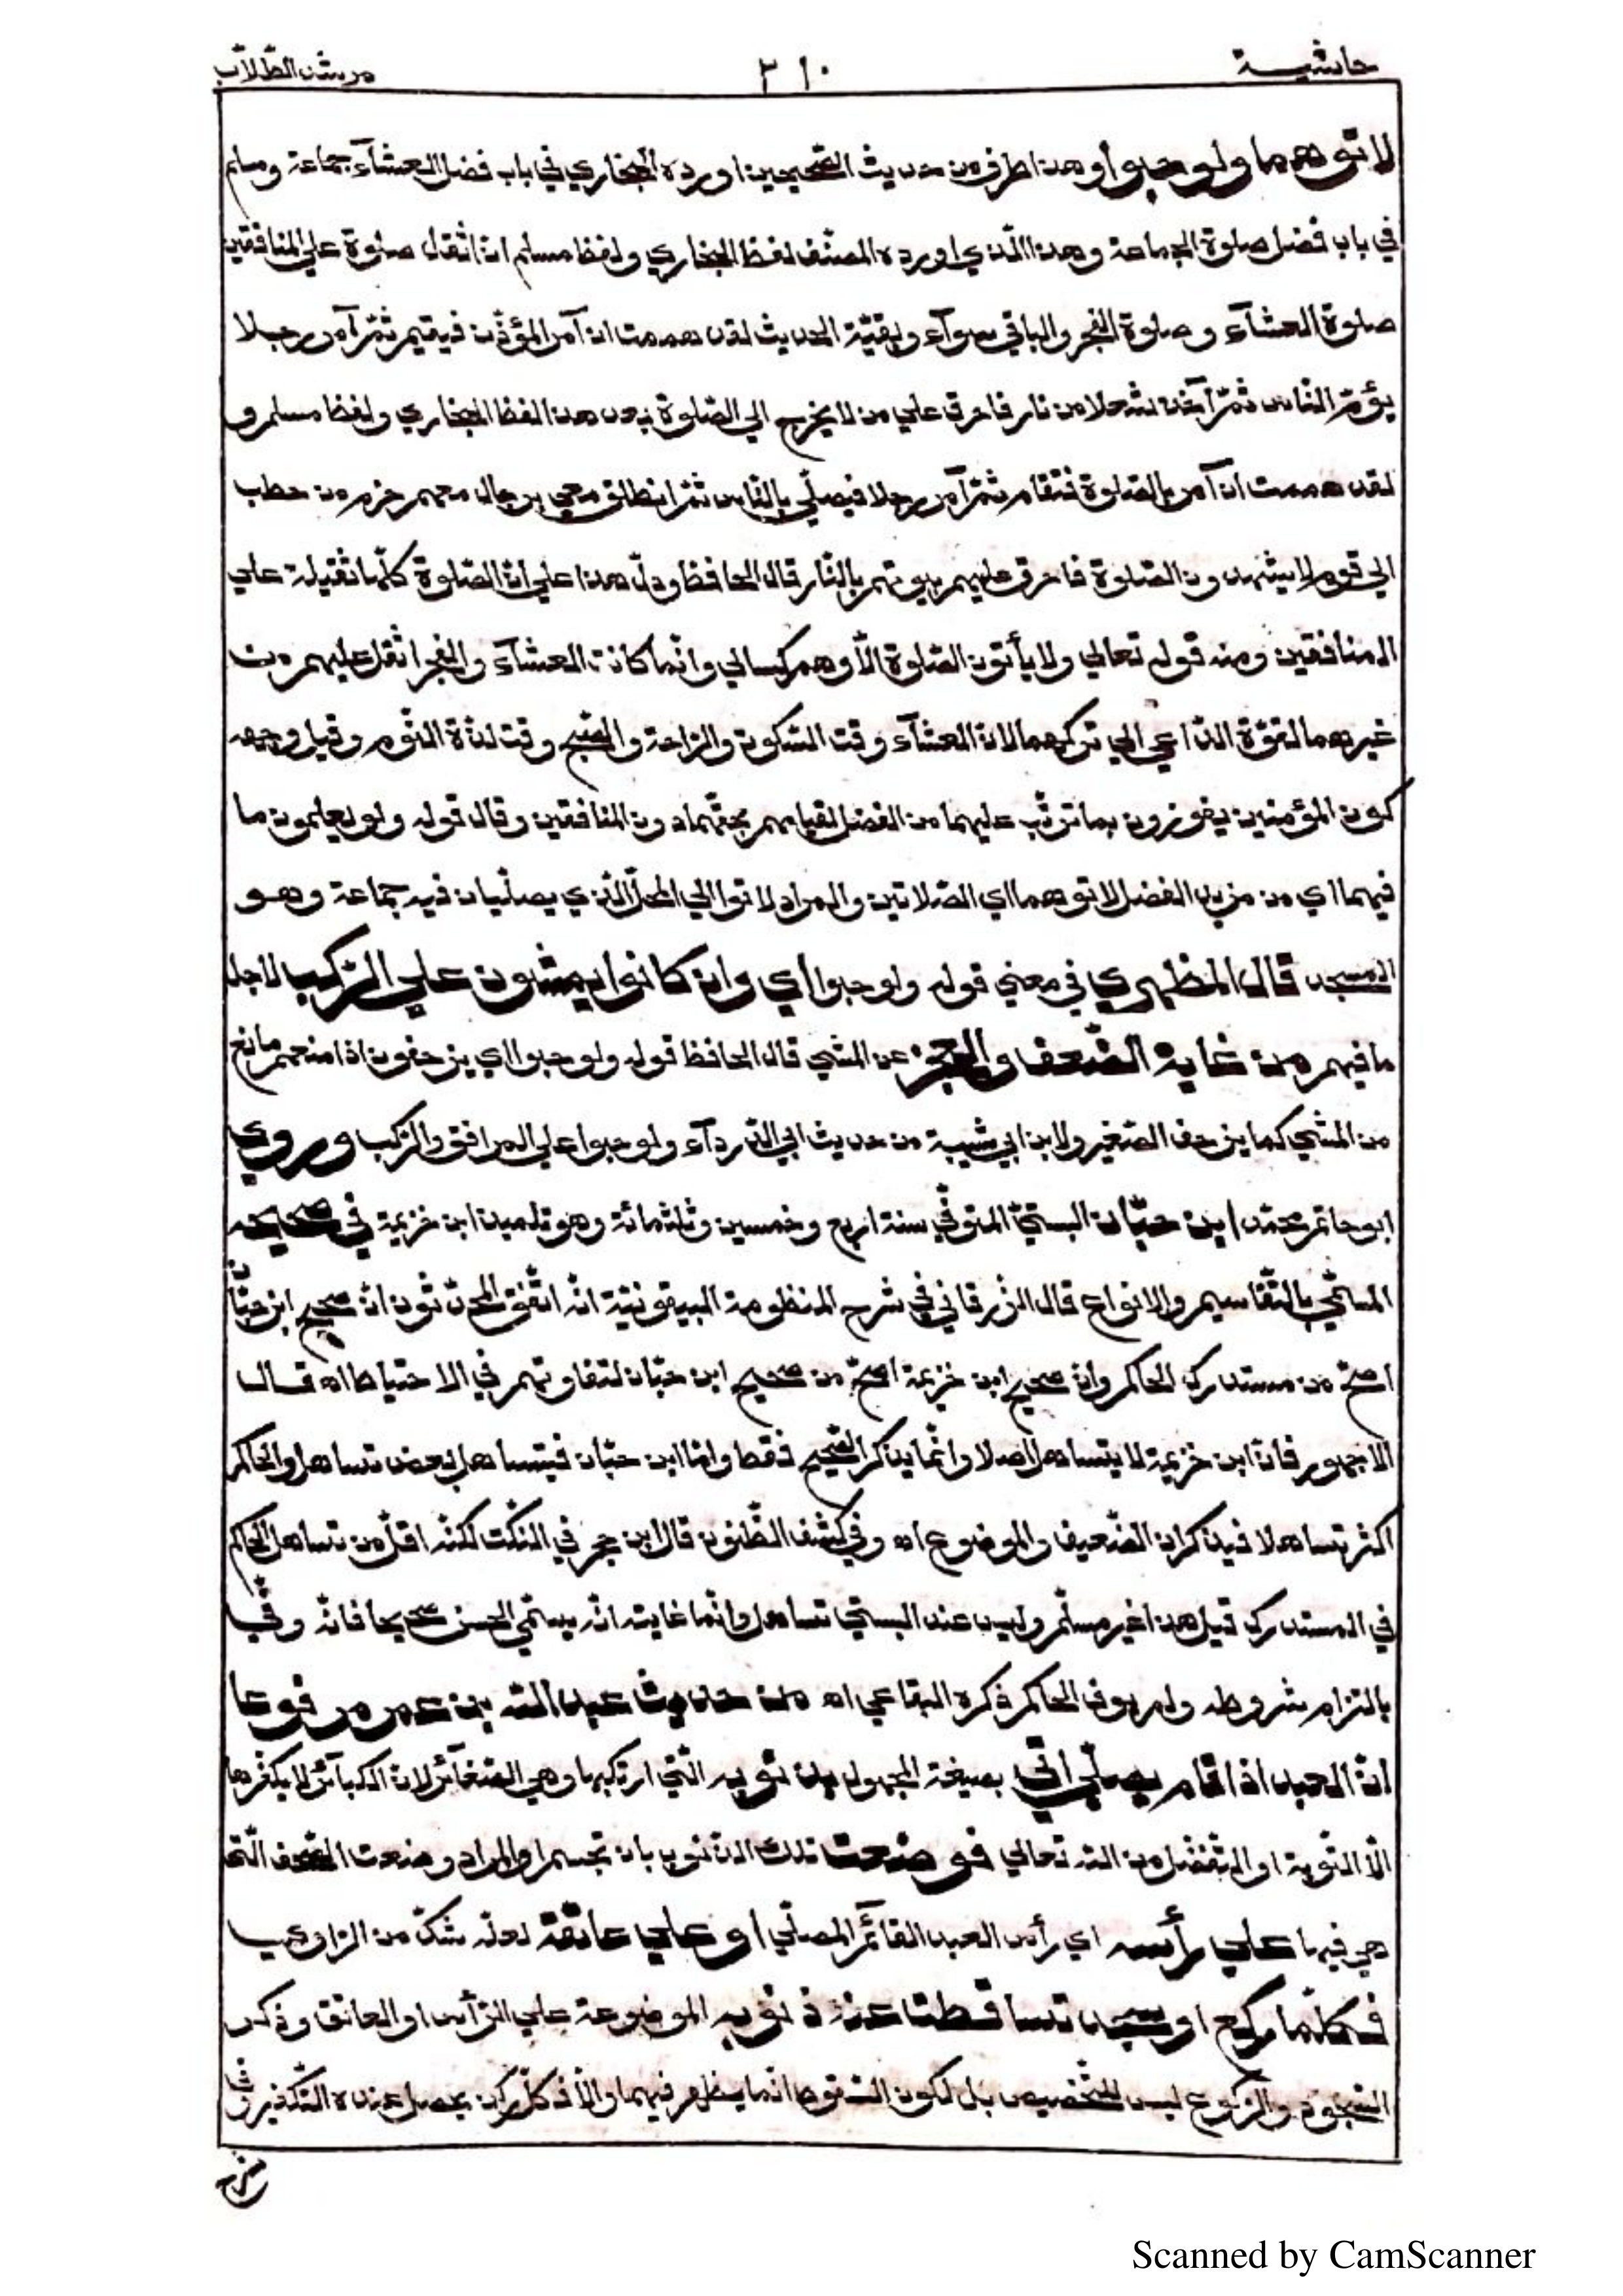 حاشية ٣١٠ مرشد الطّلاّب
لاتوهما ولو حبوا وهذا طرف من حديث الصّحيحين اورده البخاري في باب فضل العشآء جماعة ومسلم
في باب فضل صلوة الجماعة وهذا الّذي اورده المصنّف لفظ البخاري ولفظ مسلم انّ اثقل صلوة علي المنافقين
صلوة العشآء وصلوة الفجر والباقي سوآء وبقيّة الحديث لقد هممت ان آمر المؤذّن فيقيم ثمّ آمر رجلا
يؤمّ النّاس ثمّ آخذ شعلا من نار فاحرق علي من لا يخرج الي الصّلوة بعد هذا لفظ البخاري ولفظ مسلم و
لقد هممت ان آمر بالصّلوة فتقام ثمّ آمر رجلا فيصلّي بالنّاس ثمّ انطلق معي برجال معهم حزم من حطب
الي قوم لا يشهدون الصّلوة فاحرق عليهم بيوتهم بالنّار قال الحافظ ودلّ هذا علي انّ الصّلوة كلّها ثقيلة علي
المنافقين ومنه قوله تعالي ولا يأتون الصّلوة الاّ وهم كسالي وانّما كانت العشآء والفجر اثقل عليهم من
غيرهما لقوّة الدّاعي الي تركهما لانّ العشآء وقت السّكون والرّاحة والصّبح وقت لذّة النّوم وقيل وجهه
كون المؤمنين يفوزون بما ترتّب عليهما من الفضل لقيامهم بحقّهما دون المنافقين وقال قوله ولو يعلمون ما
فيهما اي من مزيد الفضل لاتوهما اي الصّلاتين والمراد لاتوا الي المحلّ الّذي يصلّيان فيه جماعة وهو
المسجد قال المظهري في معني قوله ولو حبوا اي وان كانوا يمشون علي الرّكب لاجل
ما فيهم من غاية الضّعف والعجز عن المشي قال الحافظ قوله ولو حبوا اي يزحفون اذا منعهم مانع
من المشي كما يزحف الصّغير ولابن ابي شيبة من حديث ابي الدّردآء ولو حبوا علي المرافق والرّكب وروي
ابو حاتم محمّد ابن حبّان البستيّ المتوفّي سنة اربع وخمسين وثلثمائة وهو تلميذ ابن خزيمة في صحيحه
المسمّي بالتّقاسيم والانواع قال الزّرقاني في شرح المنظومة البيقونيّة انّه اتّفق المحدّثون انّ صحيح ابن حبّان
اصحّ من مستدرك الحاكم وانّ صحيح ابن خزيمة اصحّ من صحيح ابن حبّان لتفاوتهم في الاحتياط اه قال
الاجهوري فانّ ابن خزيمة لا يتساهل اصلا وانّما يذكر الصّحيح فقط وامّا ابن حبّان فيتساهل بعض تساهل والحاكم
اكثر تساهلا فيذكران الضّعيف والموضوع اه وفي كشف الظّنون قال ابن حجر في النّكت لكنّه اقلّ من تساهل الحاكم
في المستدرك قيل هذا غير مسلّم وليس عند البستيّ تساهل وانّما غايته انّه يسمّي الحسن صحيحا فانّه وفّي
بالتزام شروطه ولم يوف الحاكم ذكره البقاعي اه من حديث عبد الله بن عمر مرفوعا
انّ العبد اذا قام يصلّي اتي بصيغة المجهول بذنوبه الّتي ارتكبها وهي الصّغآئر لانّ الكبآئر لا يكفّرها
الاّ التّوبة او التّفضّل من الله تعالي فوضعت تلك الذّنوب بان تجسم او المراد وضعت الصّحف الّتي
هي فيها علي رأسه اي رأس العبد القآئم المصلّي او علي عاتقه لعلّه شكّ من الرّاوي
فكلّما ركع او سجد تساقطت عنه ذنوبه الموضوعة علي الرّأس او العاتق وذكر
السّجود والرّكوع ليس للتّخصيص بل لكون السّقوط انّما يظهر فيهما والاّ فكلّ ركن يحصل عنده التّكفير
Scanned by CamScanner